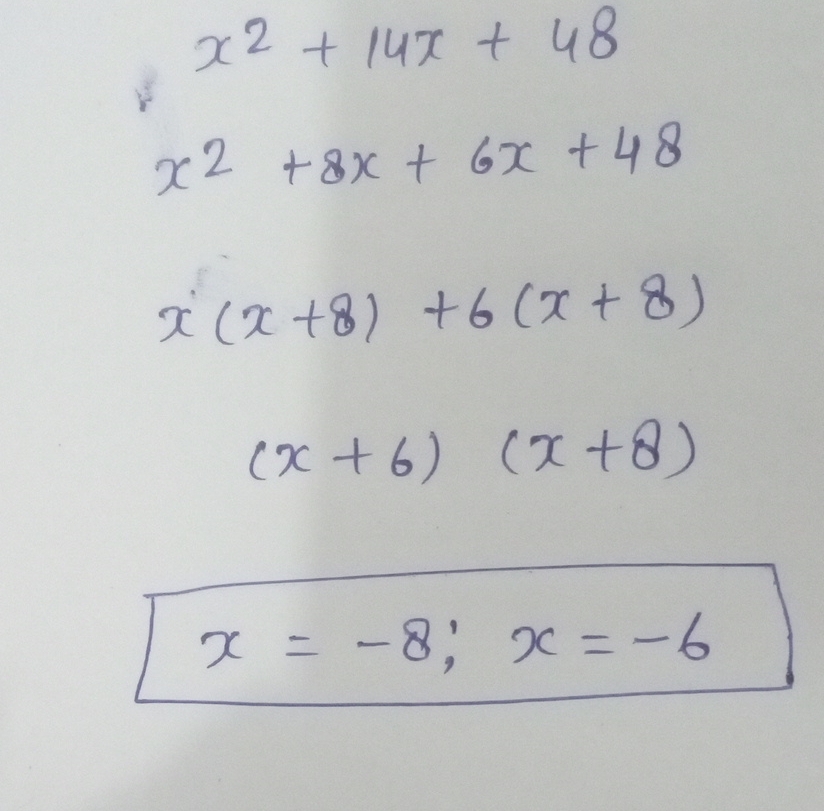 x2 + 14x + 48
x2 + 8x + 6x + 48
x(x+8) +6(x+8)
(x+6) (x+8)
x = -8; x = -6